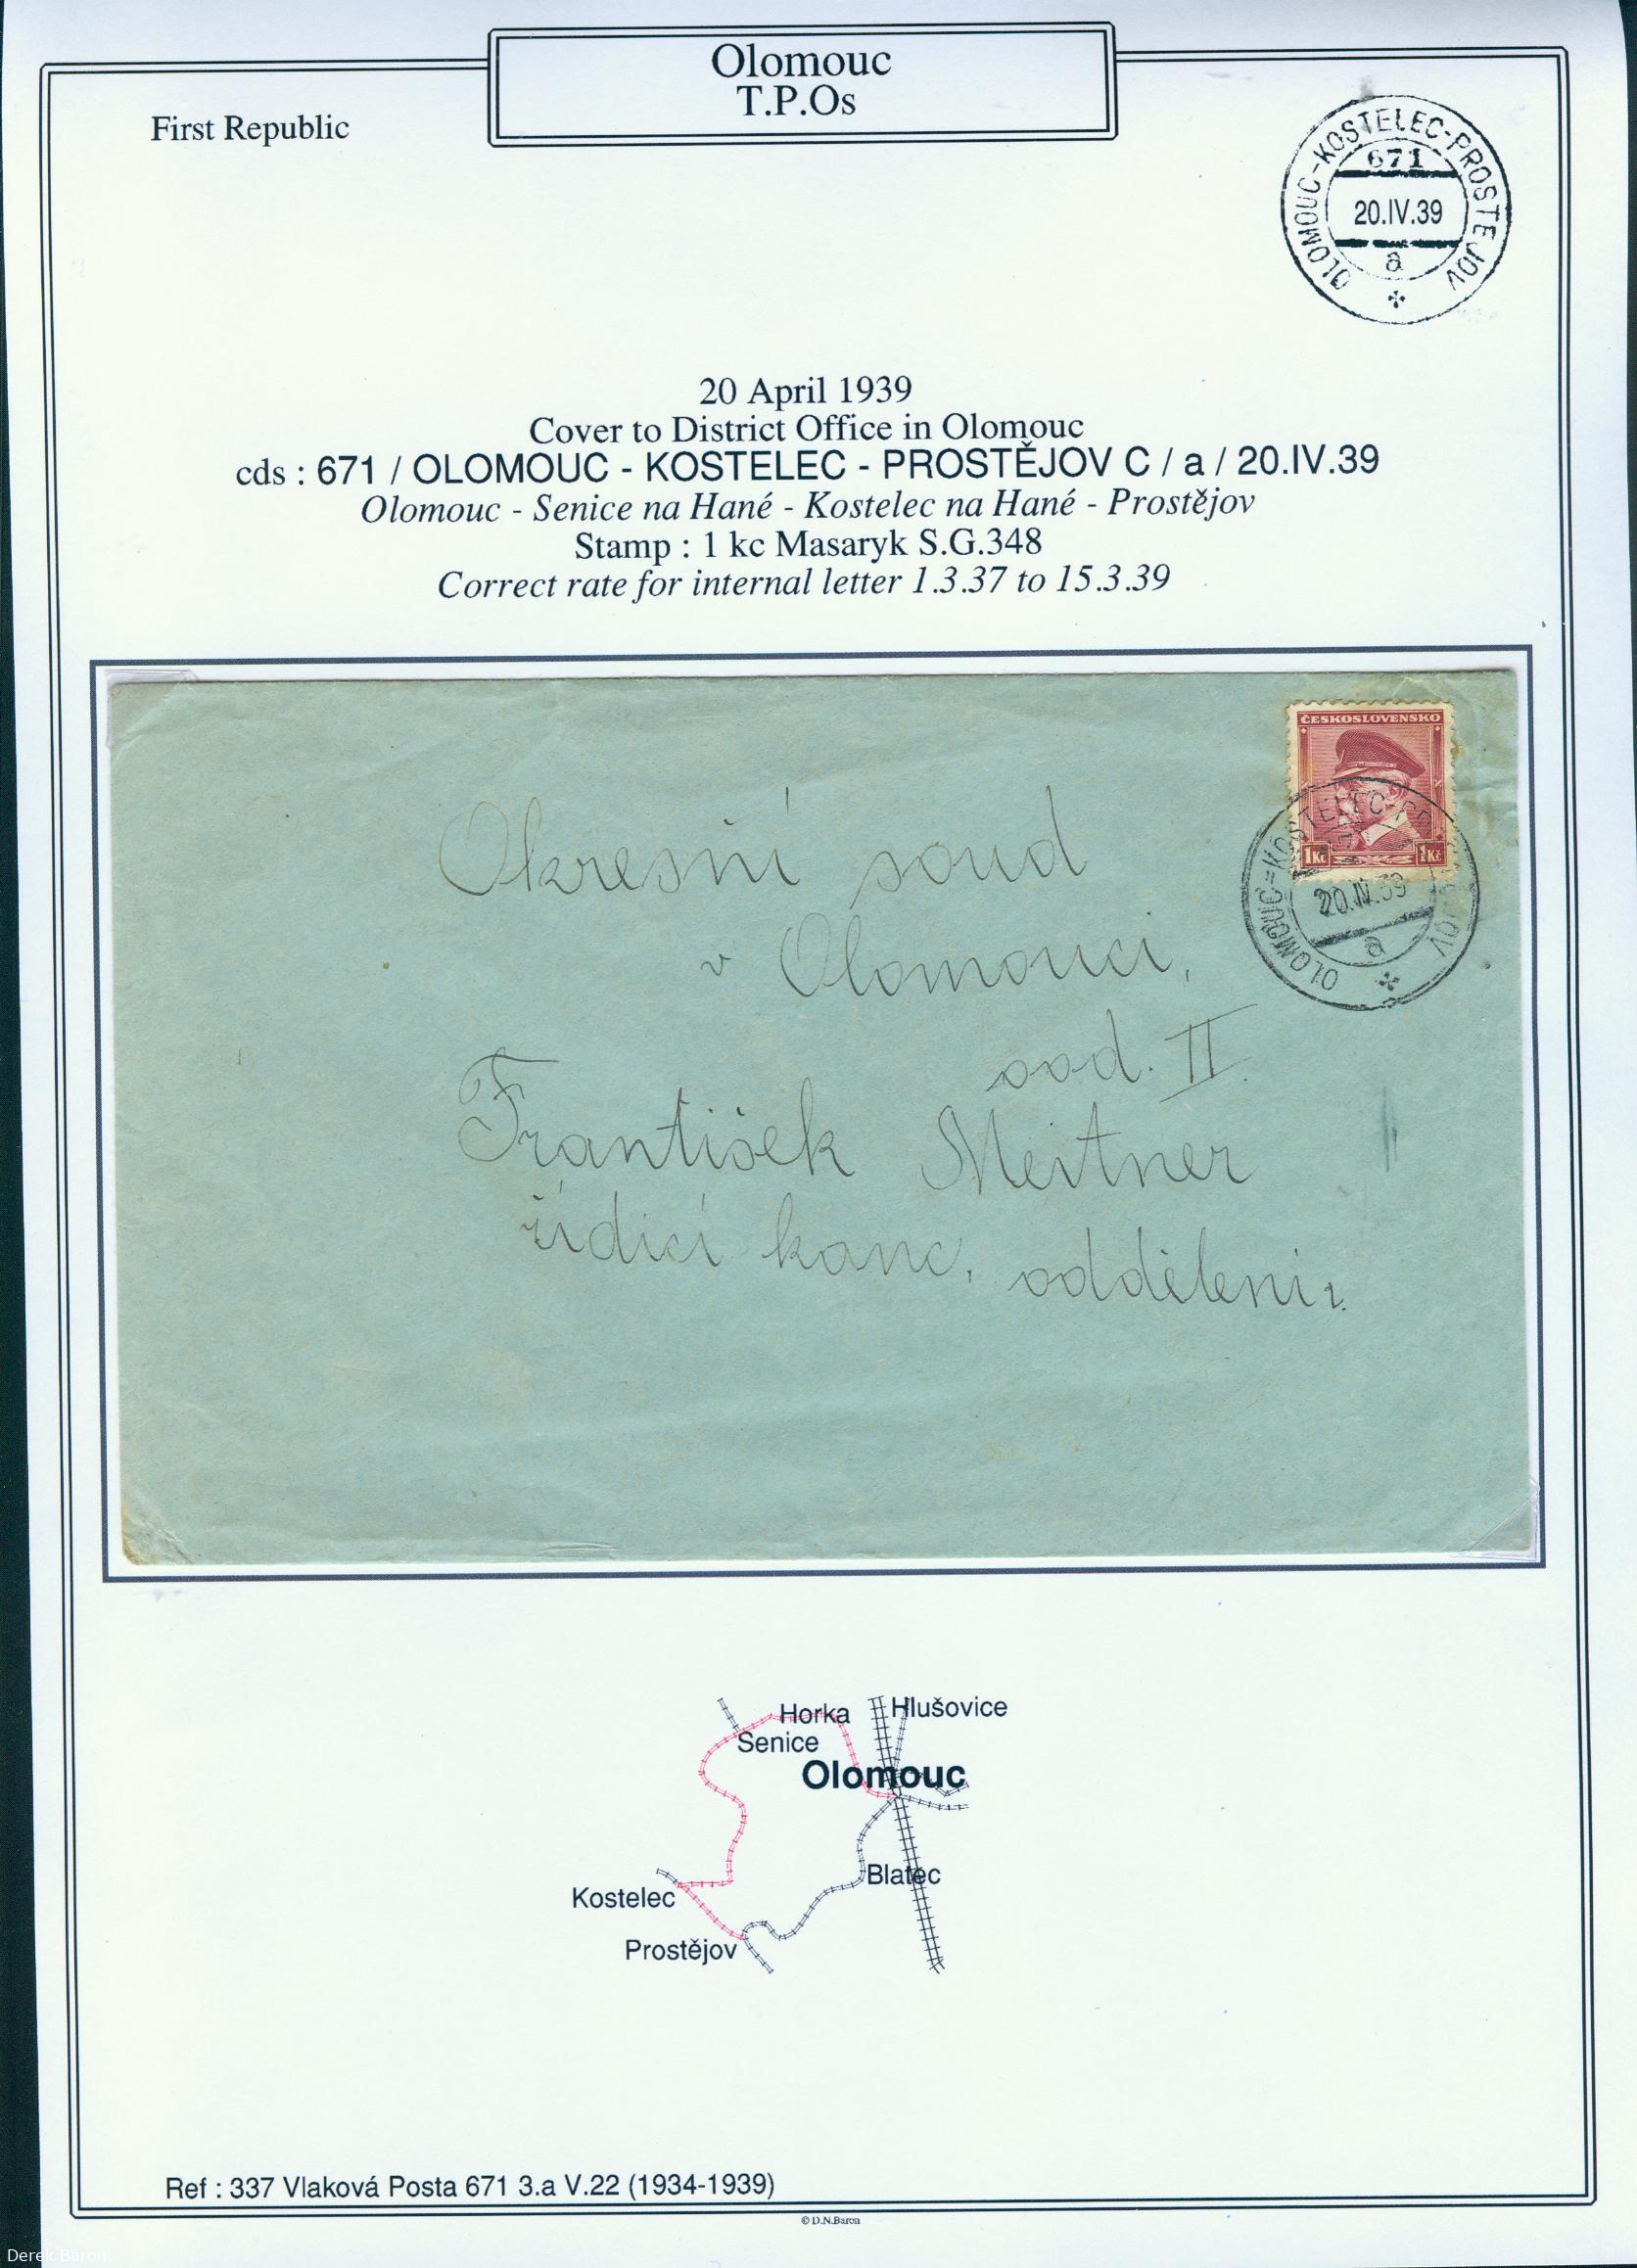 Olomouc
T.P.Os
First Republic
OLOMOUC-KOSTELEC-PROSTEJOV
671
20.IV.39
a
20 April 1939
Cover to District Office in Olomouc
cds : 671 / OLOMOUC - KOSTELEC - PROSTĚJOV C / a / 20.IV.39
Olomouc - Senice na Hané - Kostelec na Hané - Prostějov
Stamp : 1 kc Masaryk S.G.348
Correct rate for internal letter 1.3.37 to 15.3.39
ČESKOSLOVENSKO
1Kč 1Kč
20.IV.39
a
Okresní soud
v Olomouci,
odd. II.
František Meitner
řídící kanc. oddělení
Horka
Hlušovice
Senice
Olomouc
Blatec
Kostelec
Prostějov
Ref : 337 Vlaková Posta 671 3.a V.22 (1934-1939)
© D.N.Baron
Derek Baron